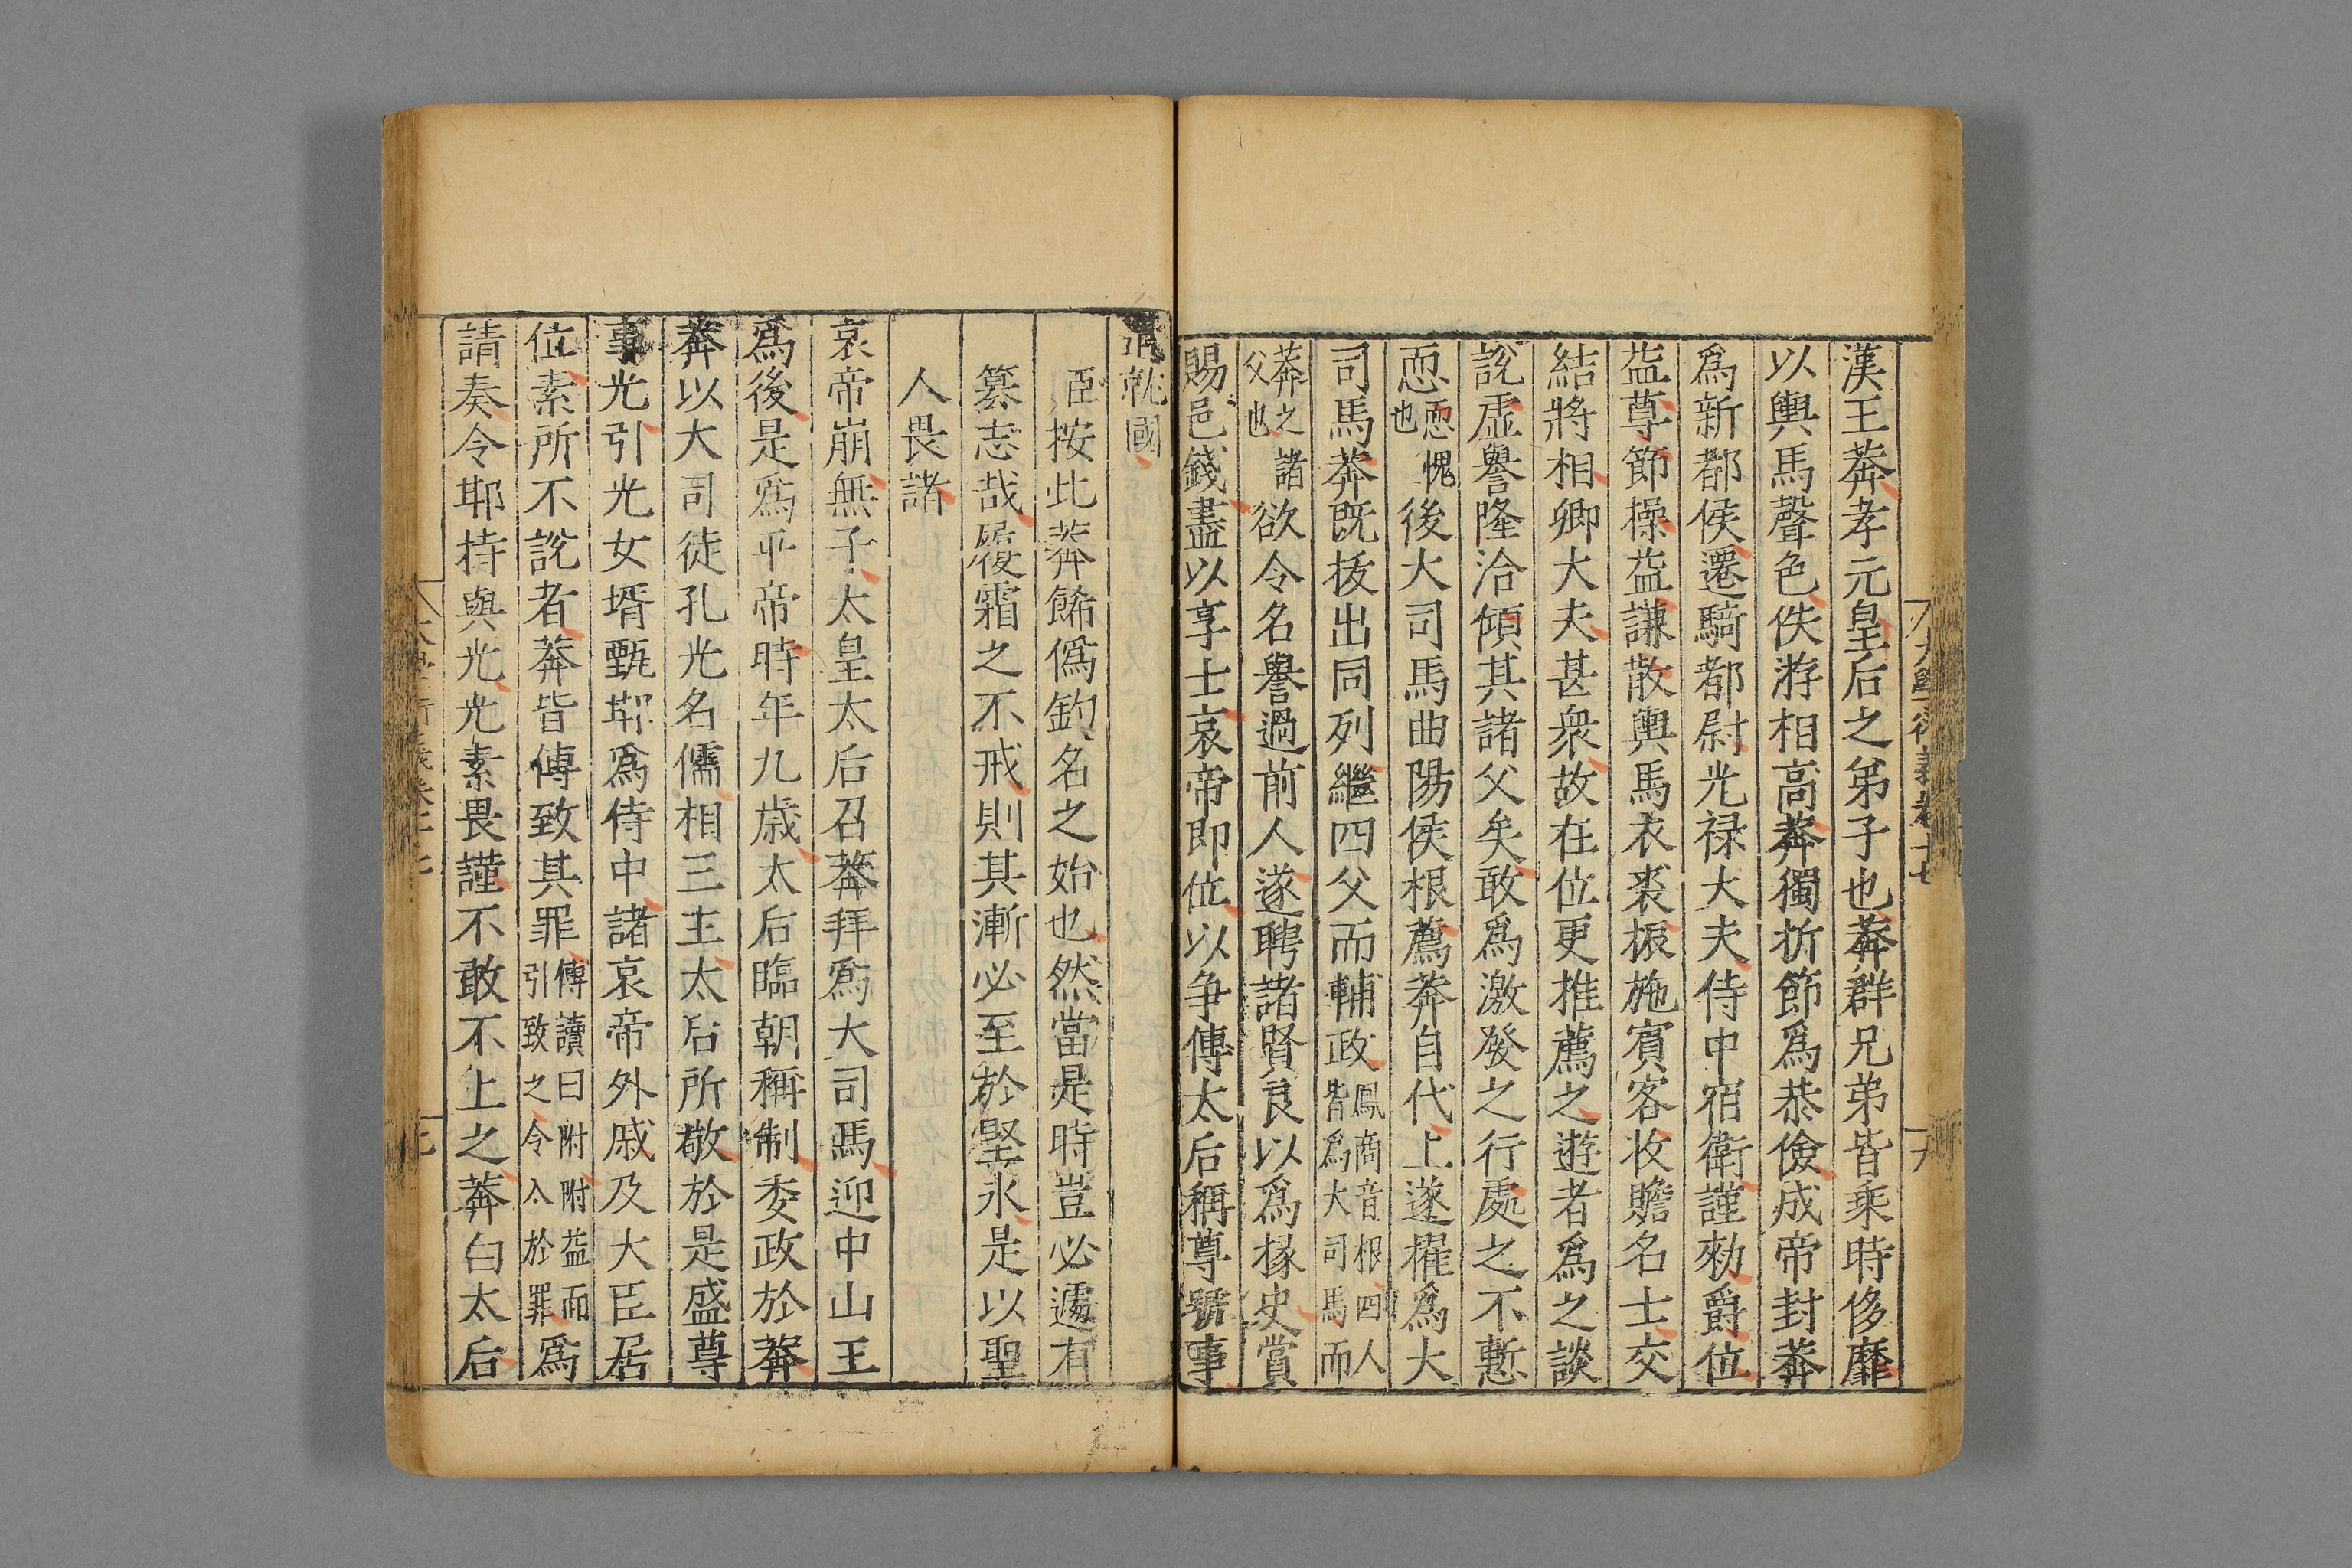 漢王莾孝元皇后之弟子也莾群兄弟皆乘時侈靡
以輿馬聲色佚游相高莾獨折節爲恭儉成帝封莾
爲新都侯遷騎都尉光禄大夫侍中宿衛謹勑爵位
益尊節操益謙散輿馬衣裘振施賓客收贍名士交
結將相卿大夫甚衆故在位更推薦之遊者爲之談
說虛譽隆洽傾其諸父矣敢爲激發之行處之不慙
恧恧愧也後大司馬曲陽侯根薦莾自代上遂擢爲大
司馬莾既拔出同列繼四父而輔政鳳商音根四人皆爲大司馬而
莾之諸父也欲令名譽過前人遂聘諸賢良以爲掾史賞
賜邑錢盡以享士哀帝即位以争傅太后稱尊號事
請就國
臣按此莾飾僞釣名之始也然當是時豈必遽有
篡志哉履霜之不戒則其漸必至於堅氷是以聖
人畏諸
哀帝崩無子太皇太后召莾拜爲大司馬迎中山王
爲後是爲平帝時年九歳太后臨朝稱制委政於莾
莾以大司徒孔光名儒相三主太后所敬於是盛尊
事光引光女壻甄邯爲侍中諸哀帝外戚及大臣居
位素所不說者莾皆傅致其罪傅讀曰附附益而引致之令入於罪爲
請奏令邯持與光光素畏謹不敢不上之莾白太后
大學衍義卷十七